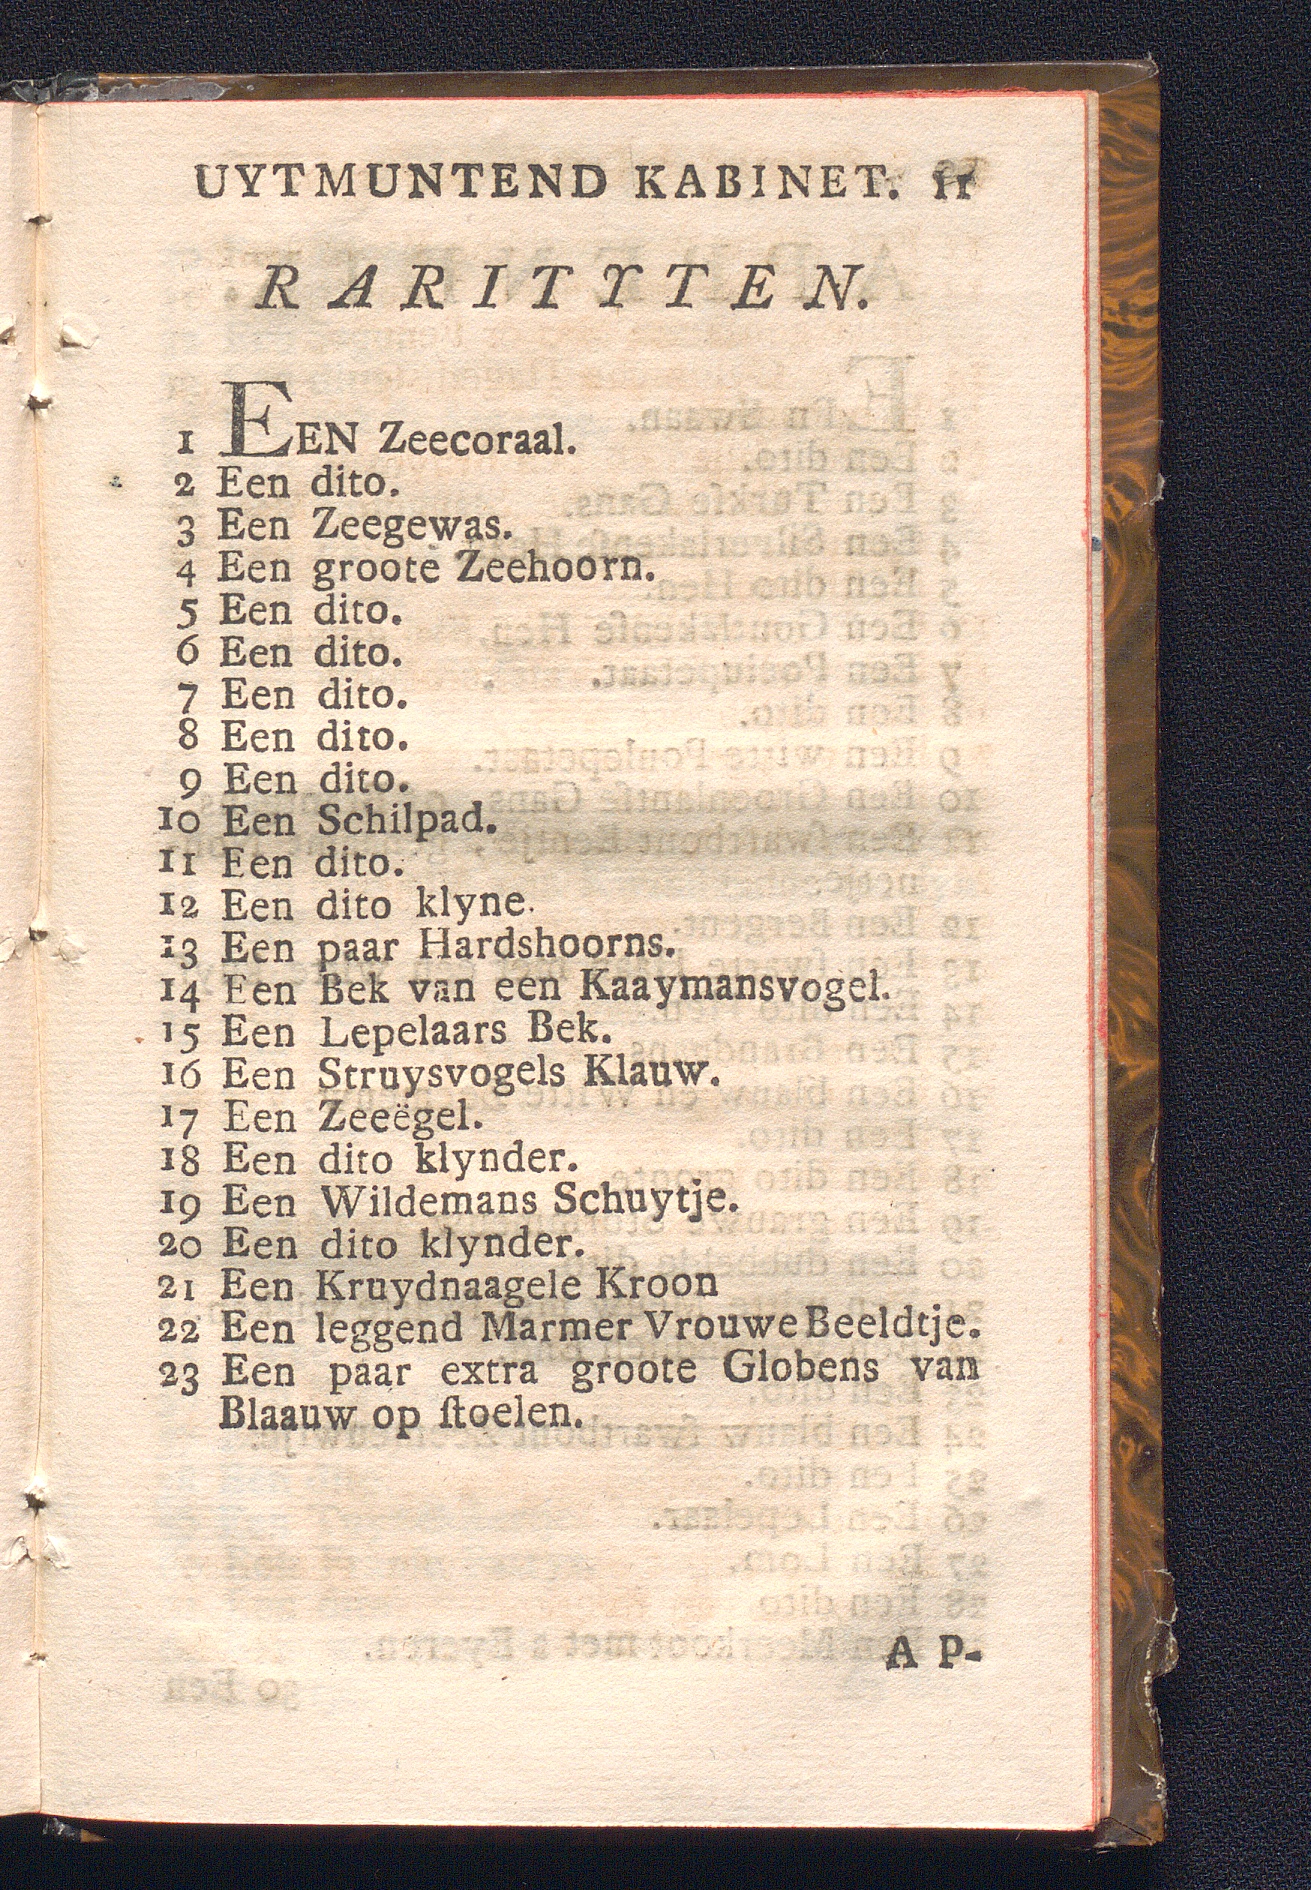 UYTMUNTEND KABINET. 11
RARITYTEN.
1 EEN Zeecoraal.
2 Een dito.
3 Een Zeegewas.
4 Een groote Zeehoorn.
5 Een dito.
6 Een dito.
7 Een dito.
8 Een dito.
9 Een dito.
10 Een Schilpad.
11 Een dito.
12 Een dito klyne.
13 Een paar Hardshoorns.
14 Een Bek van een Kaaymansvogel.
15 Een Lepelaars Bek.
16 Een Struysvogels Klauw.
17 Een Zeeëgel.
18 Een dito klynder.
19 Een Wildemans Schuytje.
20 Een dito klynder.
21 Een Kruydnaagele Kroon
22 Een leggend Marmer Vrouwe Beeldtje.
23 Een paar extra groote Globens van
Blaauw op ſtoelen.
A P-